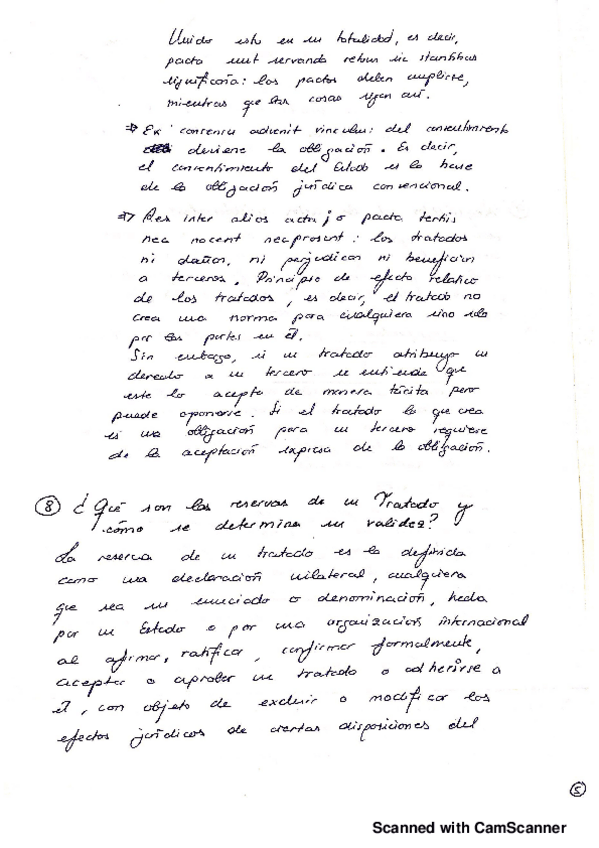 Unido esto en su totalidad, es decir,
pacta sunt servanda rebus sic stantibus
significaría: los pactos deben cumplirse,
mientras que las cosas sigan así.
⇒ Ex consensu advenit vinculum: del consentimiento
deviene la obligación. Es decir,
el consentimiento del Estado es la base
de la obligación jurídica convencional.
⇒ Res inter alios acta, o pacta tertiis
nec nocent nec prosunt: los tratados
ni dañan, ni perjudican ni benefician
a terceros. Principio de efecto relativo
de los tratados, es decir, el tratado no
crea una norma para cualquiera sino solo
por las partes en él.
Sin embargo, si un tratado atribuye un
derecho a un tercero se entiende que
este lo acepta de manera tácita pero
puede oponerse. Si el tratado lo que crea
es una obligación para un tercero requiere
de la aceptación expresa de la obligación.
⑧ ¿Qué son las reservas de un Tratado y
cómo se determina su validez?
La reserva de un tratado es la definida
como una declaración unilateral, cualquiera
que sea su enunciado o denominación, hecha
por un Estado o por una organización internacional
al afirmar, ratificar, confirmar formalmente,
aceptar o aprobar un tratado o adherirse a
él, con objeto de excluir o modificar los
efectos jurídicos de ciertas disposiciones del
⑤
Scanned with CamScanner